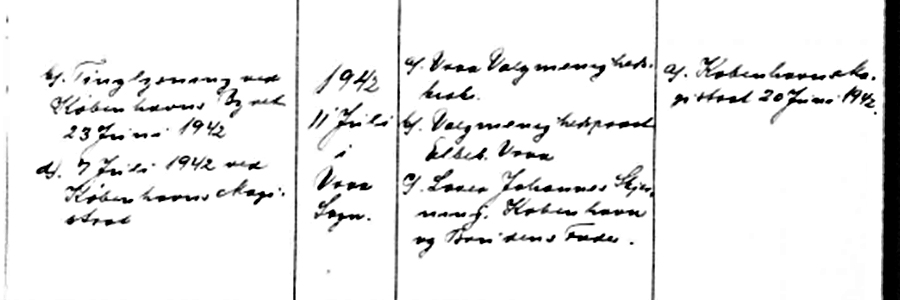 b). Tinglysning ved
Københavns Byret
23 Juni 1942
d). 7 Juli 1942 ved
Københavns Magi-
strat
1942
11 Juli
i
Voer
Sogn.
a). Voer Valgmenigheds-
kirke.
b). Valgmenighedspræst
Voer
c).  Johannes
København
og Brudens Fader.
a). Københavns Ma-
gistrat 20 Juni 1942.